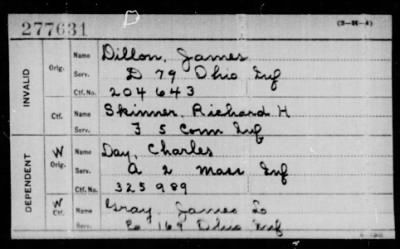 277631
(3-H-4)
INVALID
Orig.
Name Dillon, James
Serv. D 79 Ohio Inf
Ctf. No. 204643
Ctf.
Name Skinner, Richard H
Serv. F 5 Conn Inf
DEPENDENT
W Orig.
Name Day, Charles
Serv. A 2 Mass Inf
Ctf. No. 325989
W Ctf.
Name Gray, James
Serv. Co 169 Ohio Inf